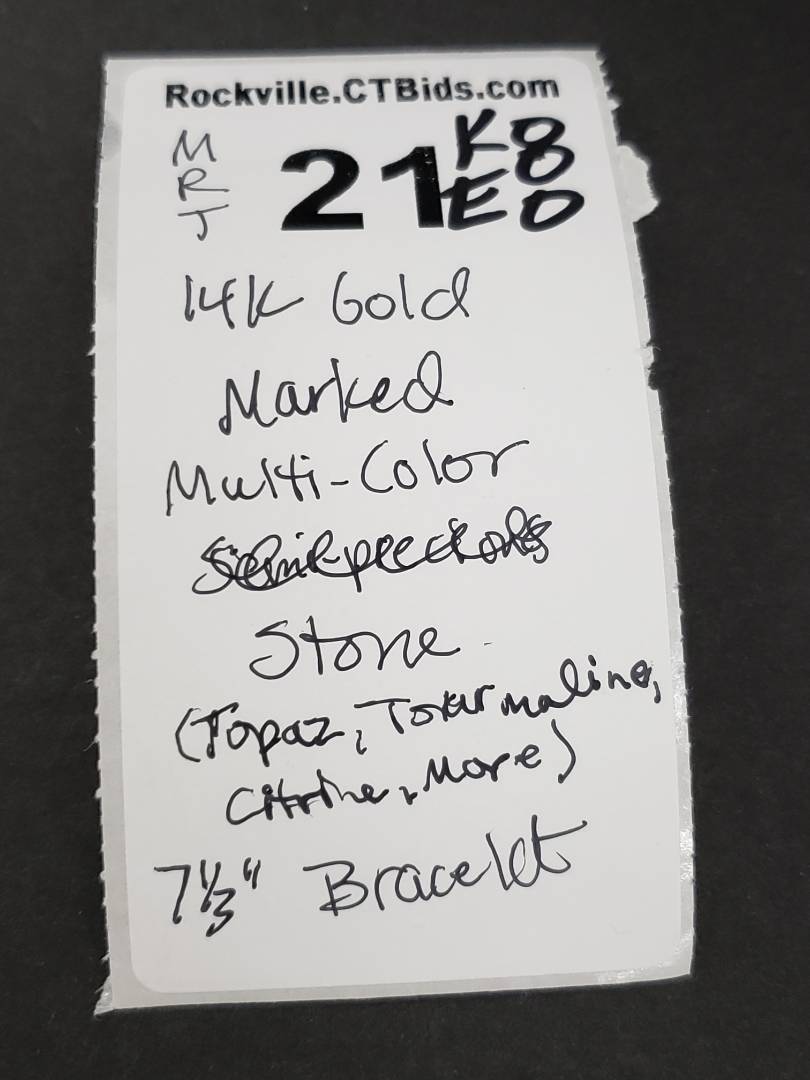 Rockville.CTBids.com
M
R
J
21
K8
E0
14K Gold
Marked
Multi-Color
Stone
(Topaz, Tourmaline,
Citrine, More)
7 1/3" Bracelet